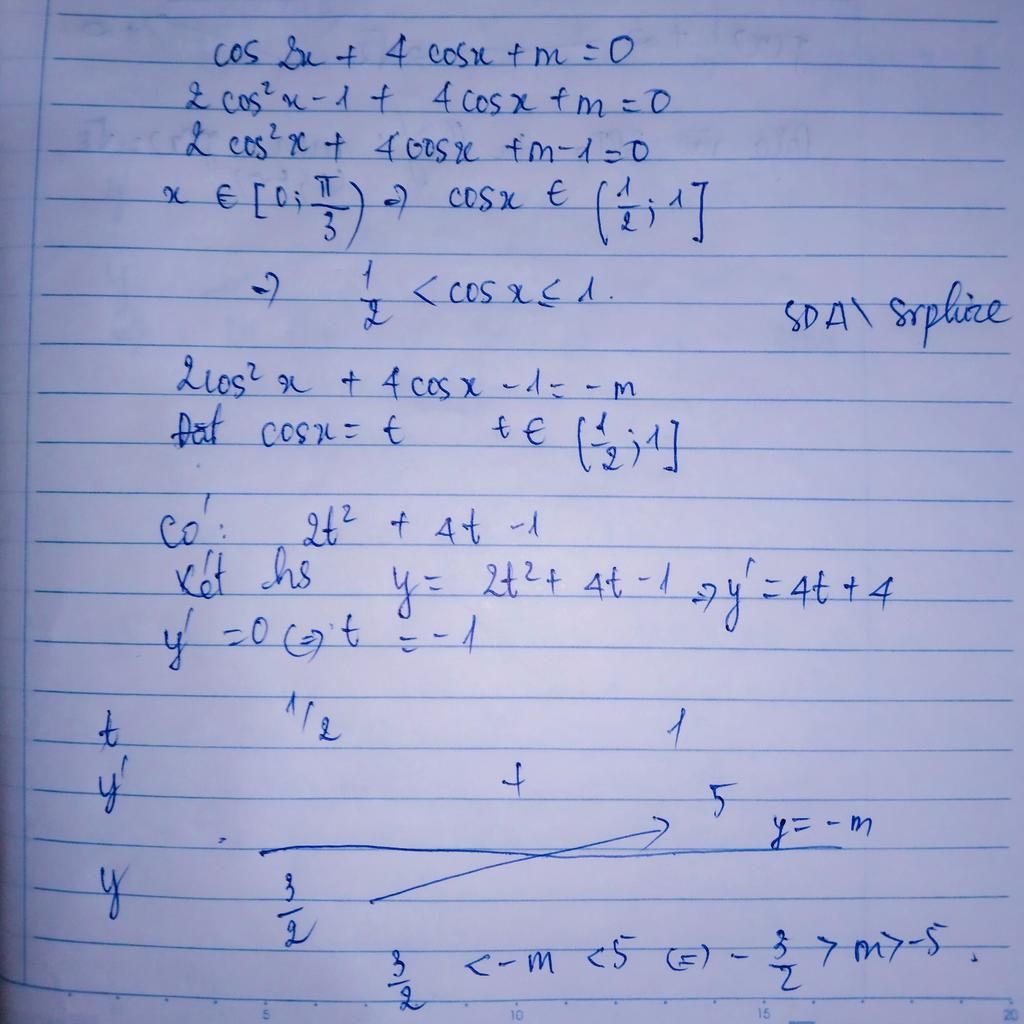 cos 2x + 4 cosx + m = 0
2 cos² x - 1 + 4 cosx + m = 0
2 cos² x + 4 cosx + m - 1 = 0
x ∈ [0; π/3) => cosx ∈ (1/2; 1]
=> 1/2 < cos x ≤ 1.
SDA\
2cos² x + 4 cosx - 1 = - m
Đặt cosx = t t ∈ (1/2; 1]
Có: 2t² + 4t - 1
Xét hs y = 2t² + 4t - 1 => y' = 4t + 4
y' = 0 <=> t = - 1
t 1/2 1
y' +
5
y = - m
y 3/2
3/2 < - m < 5 <=> - 3/2 > m > -5.
5 10 15 20